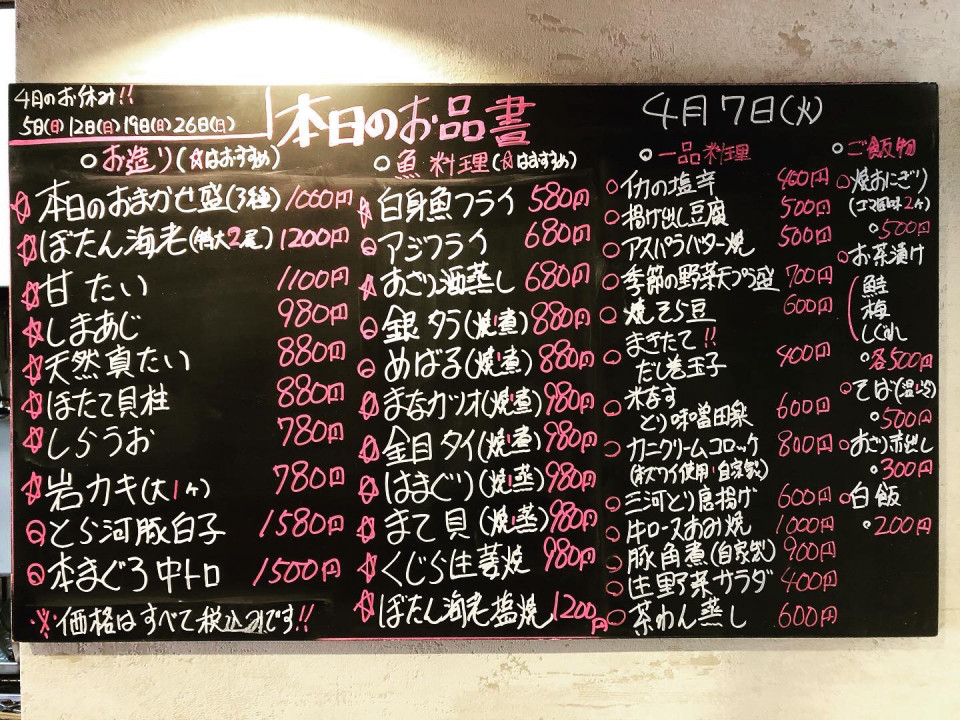 4月のお休み!!
5日(日)12日(日)19日(日)26日(日)
本日のお品書
4月7日(火)
○お造り(☆はおすすめ)
☆本日のおまかせ盛(3種) 1000円
☆ぼたん海老(特大2尾) 1200円
☆甘たい 1100円
☆しまあじ 980円
☆天然真たい 880円
☆ほたて貝柱 880円
☆しらうお 780円
☆岩カキ(大1ヶ) 780円
○とら河豚白子 1580円
○本まぐろ中トロ 1500円
※価格はすべて税込みです!!
○魚料理(☆はおすすめ)
☆白身魚フライ 580円
○アジフライ 680円
☆あさり酒蒸し 680円
○銀タラ(焼・煮) 880円
○めばる(焼・煮) 880円
○まなカツオ(焼・煮) 980円
☆金目タイ(焼・煮) 980円
☆はまぐり(焼・蒸) 980円
☆まて貝(焼・蒸) 980円
☆くじら生姜焼 980円
☆ぼたん海老塩焼 1200円
○一品料理
○イカの塩辛 400円
○揚げ出し豆腐 500円
○アスパラバター焼 500円
○季節の野菜天ぷら盛 700円
○焼そら豆 600円
まきたて!!
○だし巻玉子 400円
○米なす
とり味噌田楽 600円
○カニクリームコロッケ 800円
(本ズワイ使用・自家製)
○三河とり唐揚げ 600円
○牛ロースおろみ焼 1000円
○豚角煮(自家製) 900円
○生野菜サラダ 400円
○茶わん蒸し 600円
○ご飯物
○焼おにぎり
(ゴマ風味2ヶ)
○500円
○お茶漬け
鮭
梅
しぐれ
○各500円
○そば(温・冷)
○500円
○あさり赤出し
○300円
○白飯
○200円